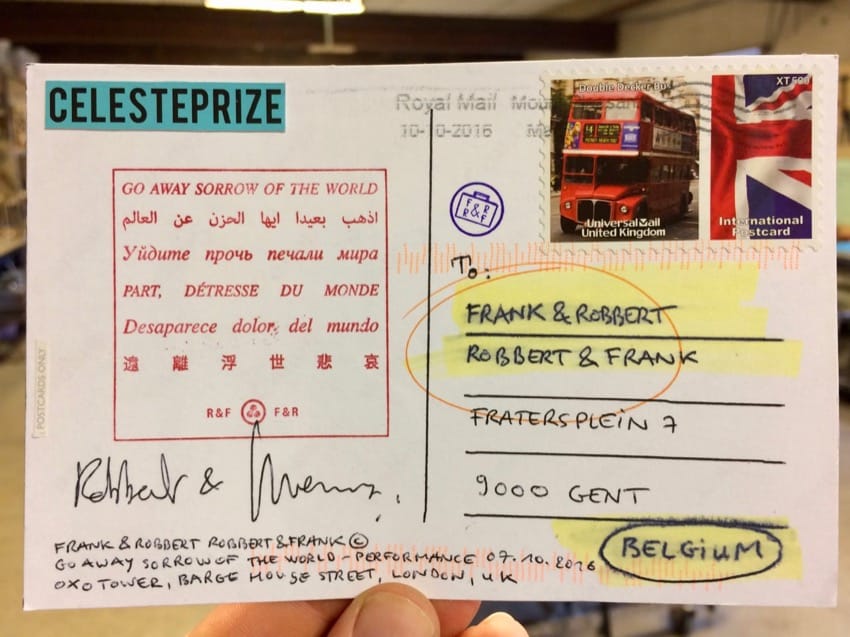 CELESTEPRIZE
GO AWAY SORROW OF THE WORLD
اذهب بعيدا ايها الحزن عن العالم
Уйдите прочь печали мира
PART, DÉTRESSE DU MONDE
Desaparece dolor, del mundo
遠離浮世悲哀
R&F F&R
Robbert &
FRANK & ROBBERT ROBBERT & FRANK ©
GO AWAY SORROW OF THE WORLD - PERFORMANCE 07.10.2016
OXO TOWER, BARGE HOUSE STREET, LONDON, UK
POSTCARDS ONLY
Royal Mail
10-10-2016
Double Decker Bus
Universal Mail
United Kingdom
XT500
International
Postcard
F&R
R&F
To:
FRANK & ROBBERT
ROBBERT & FRANK
FRATERSPLEIN 7
9000 GENT
BELGIUM